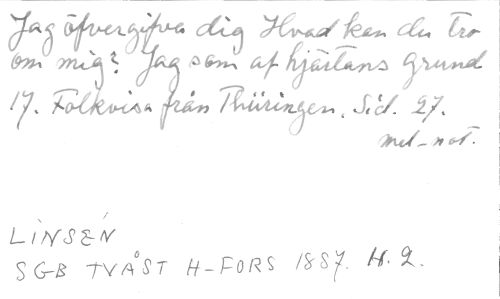 Jag öfvergifva dig Hvad kan du tro
om mig? Jag som af hjärtans grund
17. Folkvisa från Thüringen. Sid. 27.
mel-not.
LINSÉN
SGB TVÅST H-FORS 1887. H. 2.